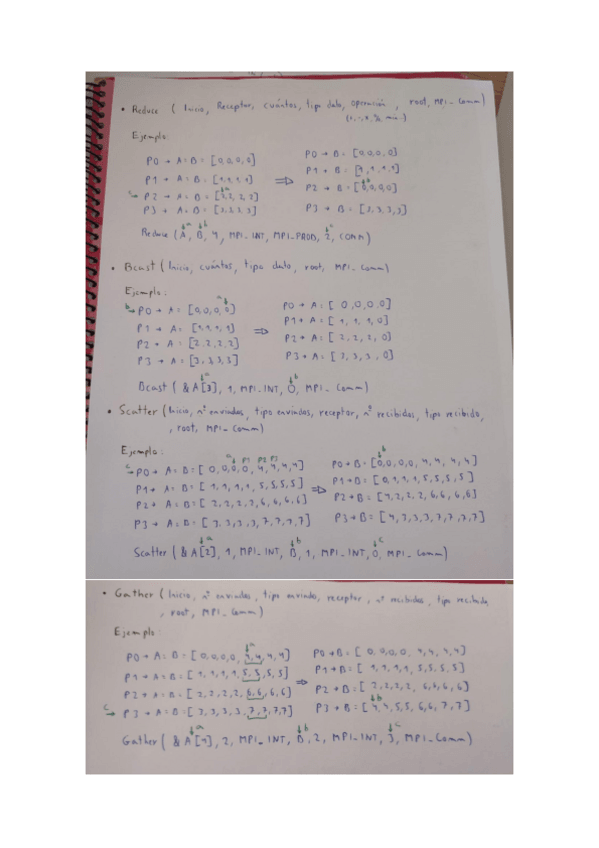 • Reduce (Inicio, Receptor, cuántos, tipo dato, operación, root, MPI_Comm)
Ejemplo:
P0 → A=B=[0,0,0,0] P0 → B=[0,0,0,0]
P1 → A=B=[1,1,1,1] ⇒ P1 → B=[1,1,1,1]
c P2 → A=B=[2,2,2,2] a P2 → B=[0,0,0,0] b
P3 → A=B=[3,3,3,3] P3 → B=[3,3,3,3]
Reduce (A, B, 4, MPI_INT, MPI_PROD, 2, COMM) a b c
• Bcast (Inicio, cuántos, tipo dato, root, MPI_Comm)
Ejemplo: a
b P0 → A=[0,0,0,0] P0 → A=[0,0,0,0]
P1 → A=[1,1,1,1] ⇒ P1 → A=[1,1,1,0]
P2 → A=[2,2,2,2] P2 → A=[2,2,2,0]
P3 → A=[3,3,3,3] P3 → A=[3,3,3,0]
a b
Bcast (&A[3], 1, MPI_INT, 0, MPI_Comm)
• Scatter (Inicio, nº enviados, tipo enviados, receptor, nº recibidos, tipo recibido,
, root, MPI_Comm)
Ejemplo: a P1 P2 P3 b
c P0 → A=B=[0,0,0,0,4,4,4,4] P0 → B=[0,0,0,0,4,4,4,4]
P1 → A=B=[1,1,1,1,5,5,5,5] ⇒ P1 → B=[0,1,1,1,5,5,5,5]
P2 → A=B=[2,2,2,2,6,6,6,6] P2 → B=[4,2,2,2,6,6,6,6]
P3 → A=B=[3,3,3,3,7,7,7,7] P3 → B=[4,3,3,3,7,7,7,7]
a b c
Scatter (&A[2], 1, MPI_INT, B, 1, MPI_INT, 0, MPI_Comm)
• Gather (Inicio, nº enviados, tipo enviados, receptor, nº recibidos, tipo recibido
, root, MPI_Comm)
Ejemplo: a
P0 → A=B=[0,0,0,0,4,4,4,4] P0 → B=[0,0,0,0,4,4,4,4]
P1 → A=B=[1,1,1,1,5,5,5,5] P1 → B=[1,1,1,1,5,5,5,5]
P2 → A=B=[2,2,2,2,6,6,6,6] ⇒ P2 → B=[2,2,2,2,6,6,6,6]
c P3 → A=B=[3,3,3,3,7,7,7,7] P3 → B=[4,4,5,5,6,6,7,7] b
a b c
Gather (&A[4], 2, MPI_INT, B, 2, MPI_INT, 3, MPI_Comm)